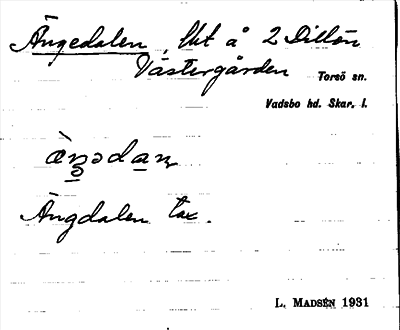 Ängedalen, lht å 2 Dillön
Västergården Torsö sn.
Vadsbo hd. Skar. l.
Ängdalen tax.
L. MADSÉN 1931